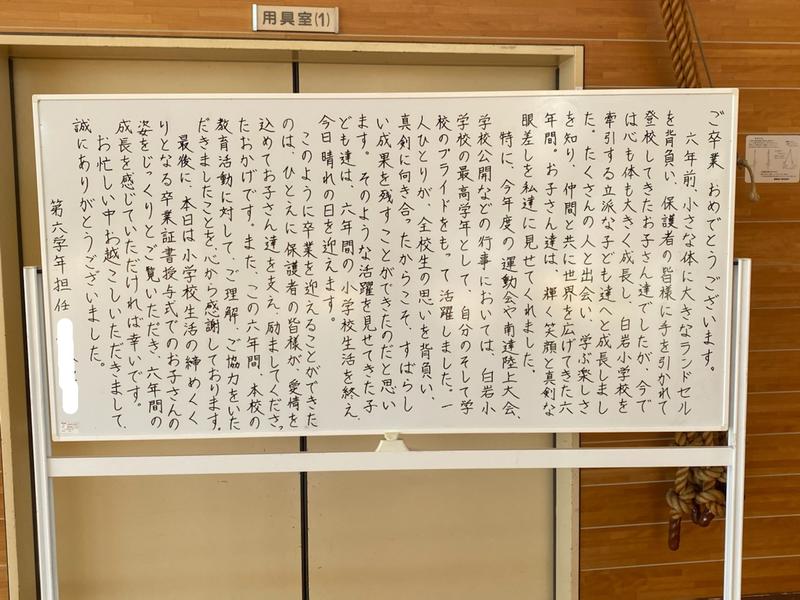 用具室(1)
ご卒業、おめでとうございます。
六年前、小さな体に大きなランドセル
を背負い、保護者の皆様に手を引かれて
登校してきたお子さん達でしたが、今で
は心も体も大きく成長し、白岩小学校を
牽引する立派な子ども達へと成長しまし
た。たくさんの人と出会い、学ぶ楽しさ
を知り、仲間と共に世界を広げてきた六
年間。お子さん達は、輝く笑顔と真剣な
眼差しを私達に見せてくれました。
特に、今年度の運動会や南達陸上大会、
学校公開などの行事においては、白岩小
学校の最高学年として、自分のそして学
校のプライドをもって活躍しました。一
人ひとりが、全校生の思いを背負い、
真剣に向き合ったからこそ、すばらし
い成果を残すことができたのだと思い
ます。そのような活躍を見せてきた子
ども達は、六年間の小学校生活を終え、
今日晴れの日を迎えます。
このように卒業を迎えることができた
のは、ひとえに保護者の皆様が、愛情を
込めてお子さん達を支え、励ましてくださっ
たおかげです。また、この六年間、本校の
教育活動に対して、ご理解、ご協力をいた
だきましたことを、心から感謝しております。
最後に、本日は小学校生活の締めくく
りとなる卒業証書授与式でのお子さんの
姿をじっくりとご覧いただき、六年間の
成長を感じていただければ幸いです。
お忙しい中お越しいただきまして、
誠にありがとうございました。
第六学年担任